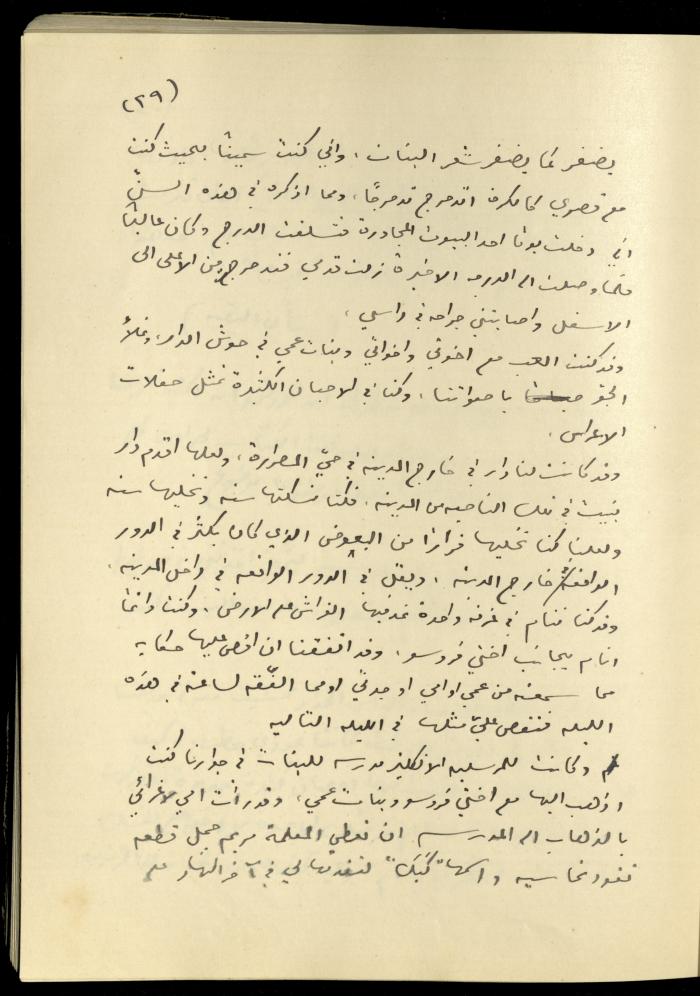 (٢٩)
يضفر كما يضفر شعر البنات، واني كنت سمينًا بحيث كنت
مع قصري كالكرة اتدحرج تدحرجًا، ومما اذكره في هذه السنّ
اني دخلت يومًا احد البيوت المجاورة فتسلقت الدرج وكان عاليًا
فلما وصلت الى الدرجه الاخيرة زلت قدمي فتدحرجت من الاعلى الى
الاسفل واصابتني جراحه في راسي.
وقد كنت العب مع اخوتي واخواتي وبنات عمي في حوش الدار، ونملأ
الجو باصواتنا، وكنا في الاحيان الكثيرة نمثل حفلات
الاعراس.
وقد كانت لنا دار في خارج المدينه في حيّ المصرارة، ولعلها اقدم دار
بنيت في تلك الناحيه من المدينه. فكنا نسكنها سنه ونخليها سنه
ولعلنا كنا نخليها فرارًا من البعوض الذي كان يكثر في الدور
الواقعة خارج المدينه، ويقل في الدور الواقعه في داخل المدينه.
وقد كنا ننام في غرفه واحدة نمد فيها الفراش على الارض، وكنت دائمًا
انام بجانب اختي فروسو، وقد اتفقنا ان اقص عليها حكايه
مما سمعته من عمي او امي او جدتي او مما الفّقه لساعته في هذه
الليله فتقص عليّ مثلها في الليله التاليه
وكانت للمرسليه الانكليز مدرسه للبنات في جوارنا كنت
اذهب اليها مع اختي فروسو وبنات عمي، وقد رأت امي لاغرائي
بالذهاب الى المدرسه ان تعطي المعلمة مريم جميل قطعه
نقود نحاسيه واسمها "كَبَك" لتقدمها لي في آخر النهار على